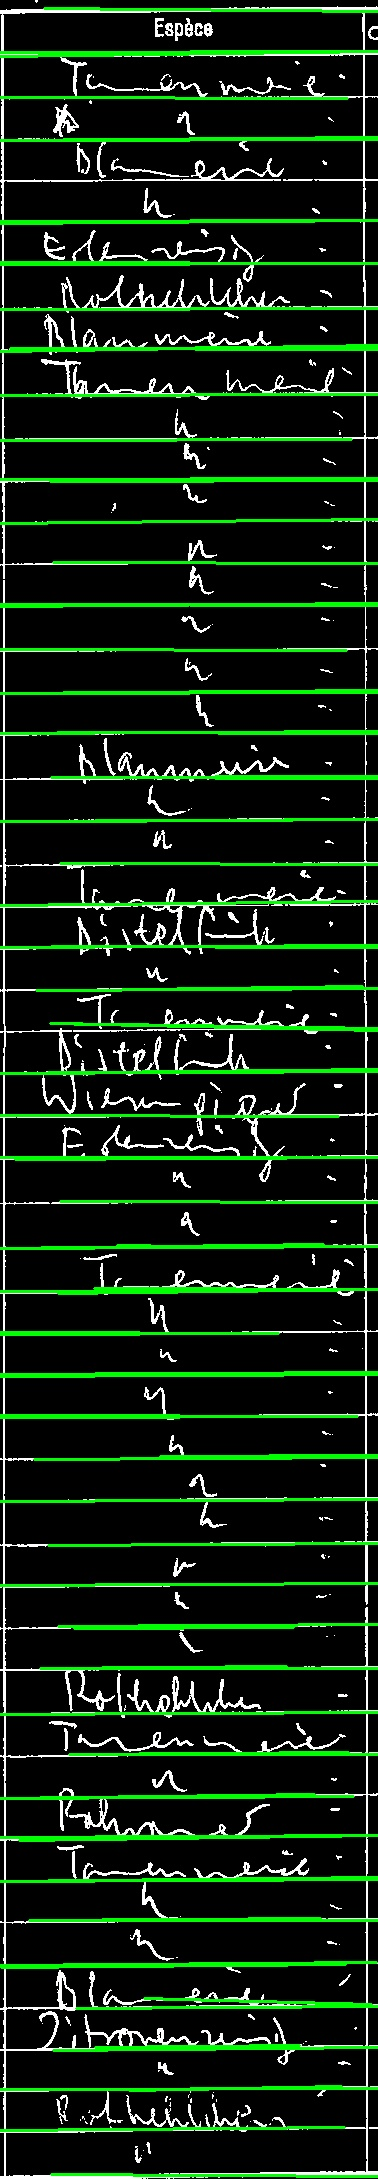 Espèce
Tannenmeise
"
Blaumeise
"
Erlenzeisig
Rotkehlchen
Blaumeise
Tannenmeise
"
"
"
"
"
"
"
"
Blaumeise
"
"
Tannenmeise
Distelfink
"
Tannenmeise
Distelfink
Wiesenpieper
Erlenzeisig
"
"
Tannenmeise
"
"
"
"
"
"
"
"
"
Rotkehlchen
Tannenmeise
"
Tannenmeise
"
"
Blaumeise
Zitronenzeisig
"
Rotkehlchen
"